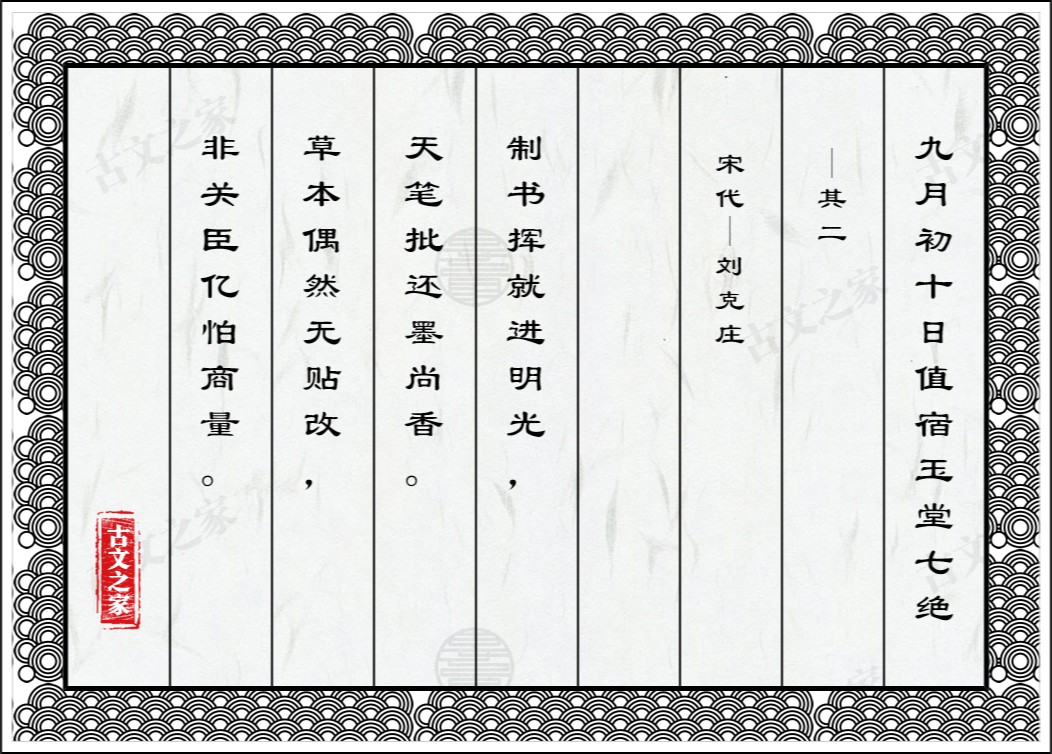 九月初十日值宿玉堂七绝
—其二
宋代—刘克庄
制书挥就进明光，
天笔批还墨尚香。
草本偶然无贴改，
非关臣亿怕商量。
古文之家
古文之家
古文之家
古文之家